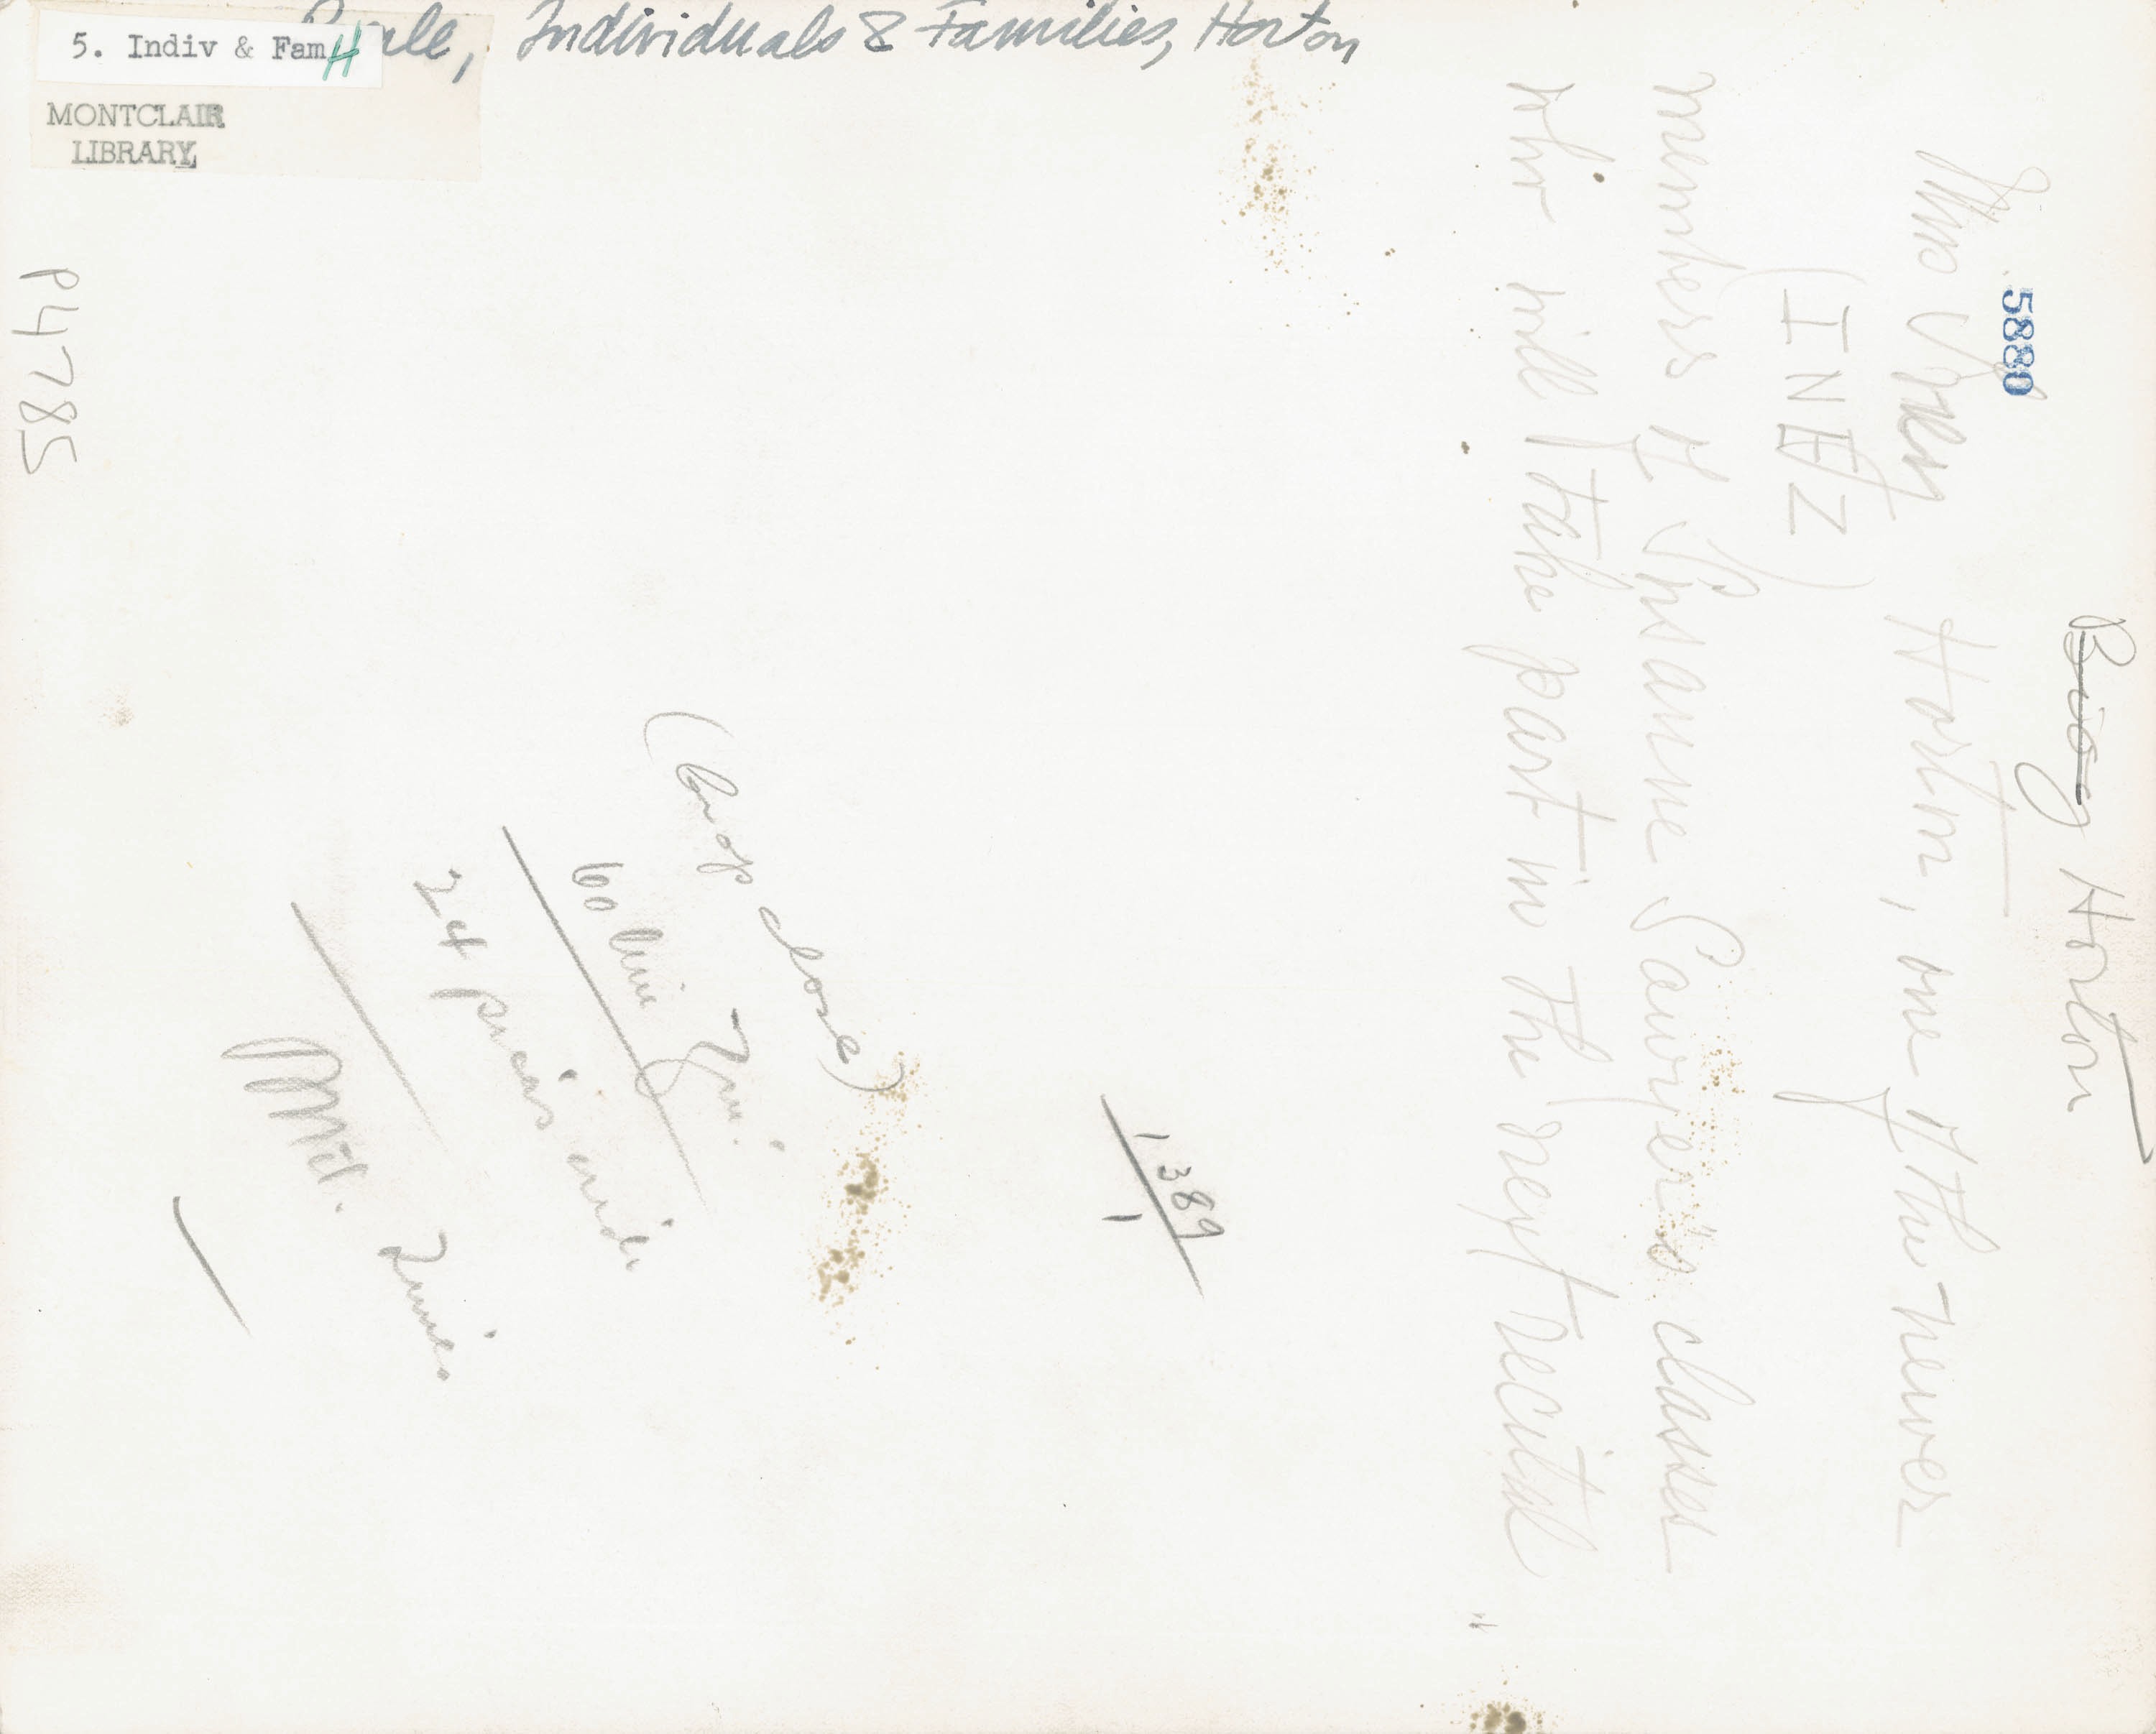 5. Indiv & Fam H
Individuals & Families, Horton
MONTCLAIR
LIBRARY
P4785
5880
Biog Horton
Miss Inez Horton, one of the newer
(INEZ)
members of Susanne Sawyer's classes
who will take part in the next recital
(Crop close)
60 line Zinc
24 picas wide
Mtd. Times
1389